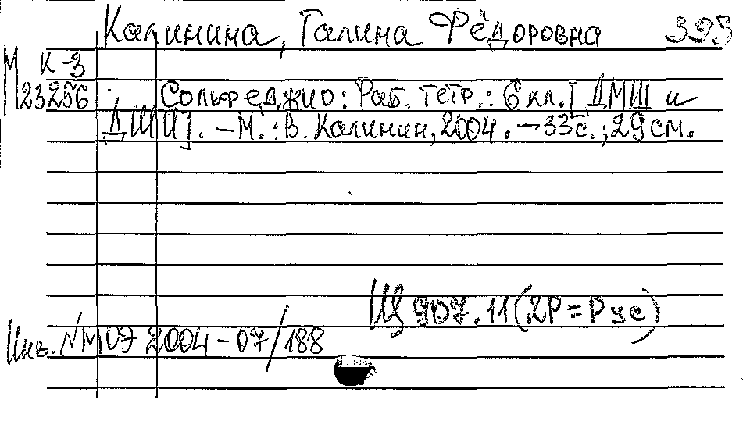 Калинина, Галина Фёдоровна 393
К-3
М 23256
Сольфеджио: Раб. тетр.: 6 кл. [ДМШ и
ДШИ]. – М.: В. Калинин, 2004. – 33с.; 29 см.
Щ 907.11(2Р=Рус)
Инв. № М07 2004-07/188